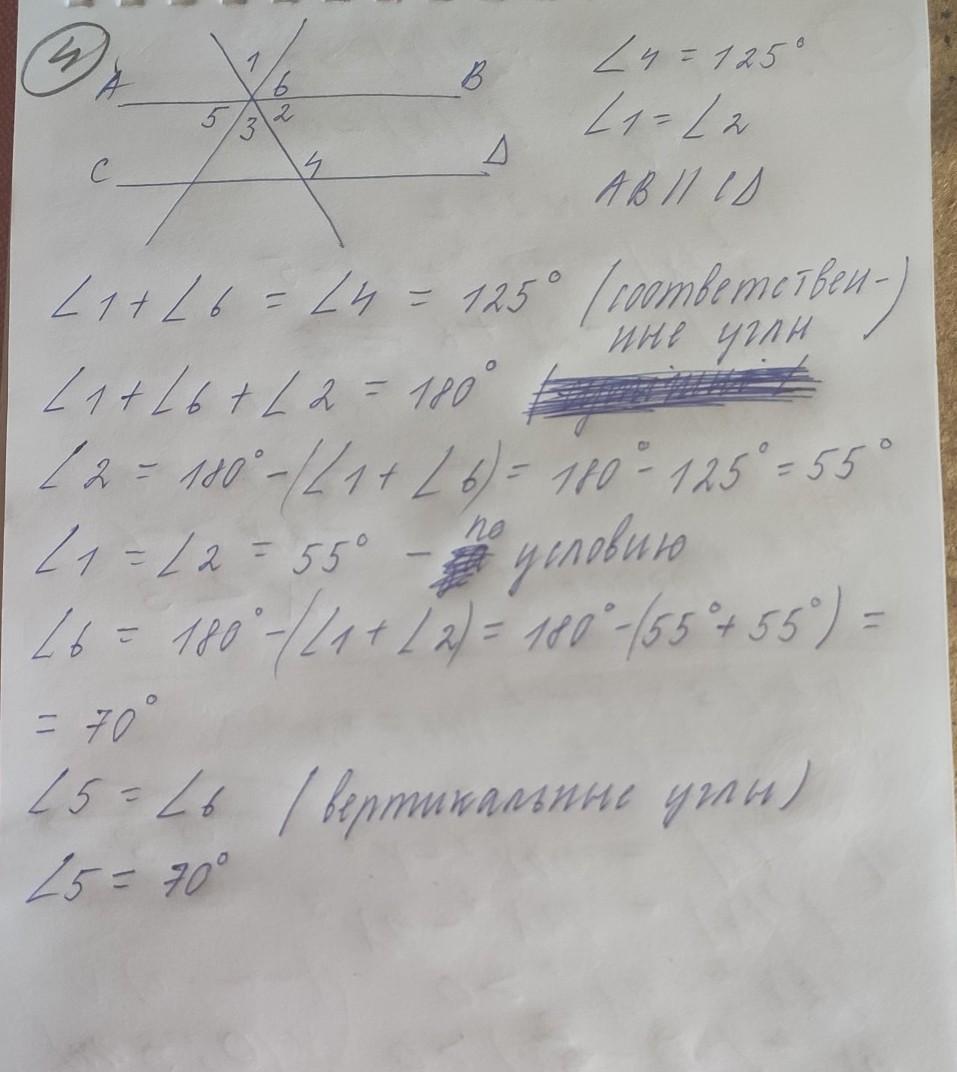 4
1
6
A
B
5
3
2
C
4
D
∠4 = 125°
∠1 = ∠2
AB || CD
∠1 + ∠6 = ∠4 = 125° (соответствен-
ные углы)
∠1 + ∠6 + ∠2 = 180°
∠2 = 180° - (∠1 + ∠6) = 180° - 125° = 55°
∠1 = ∠2 = 55° - по условию
∠6 = 180° - (∠1 + ∠2) = 180° - (55° + 55°) =
= 70°
∠5 = ∠6 (вертикальные углы)
∠5 = 70°